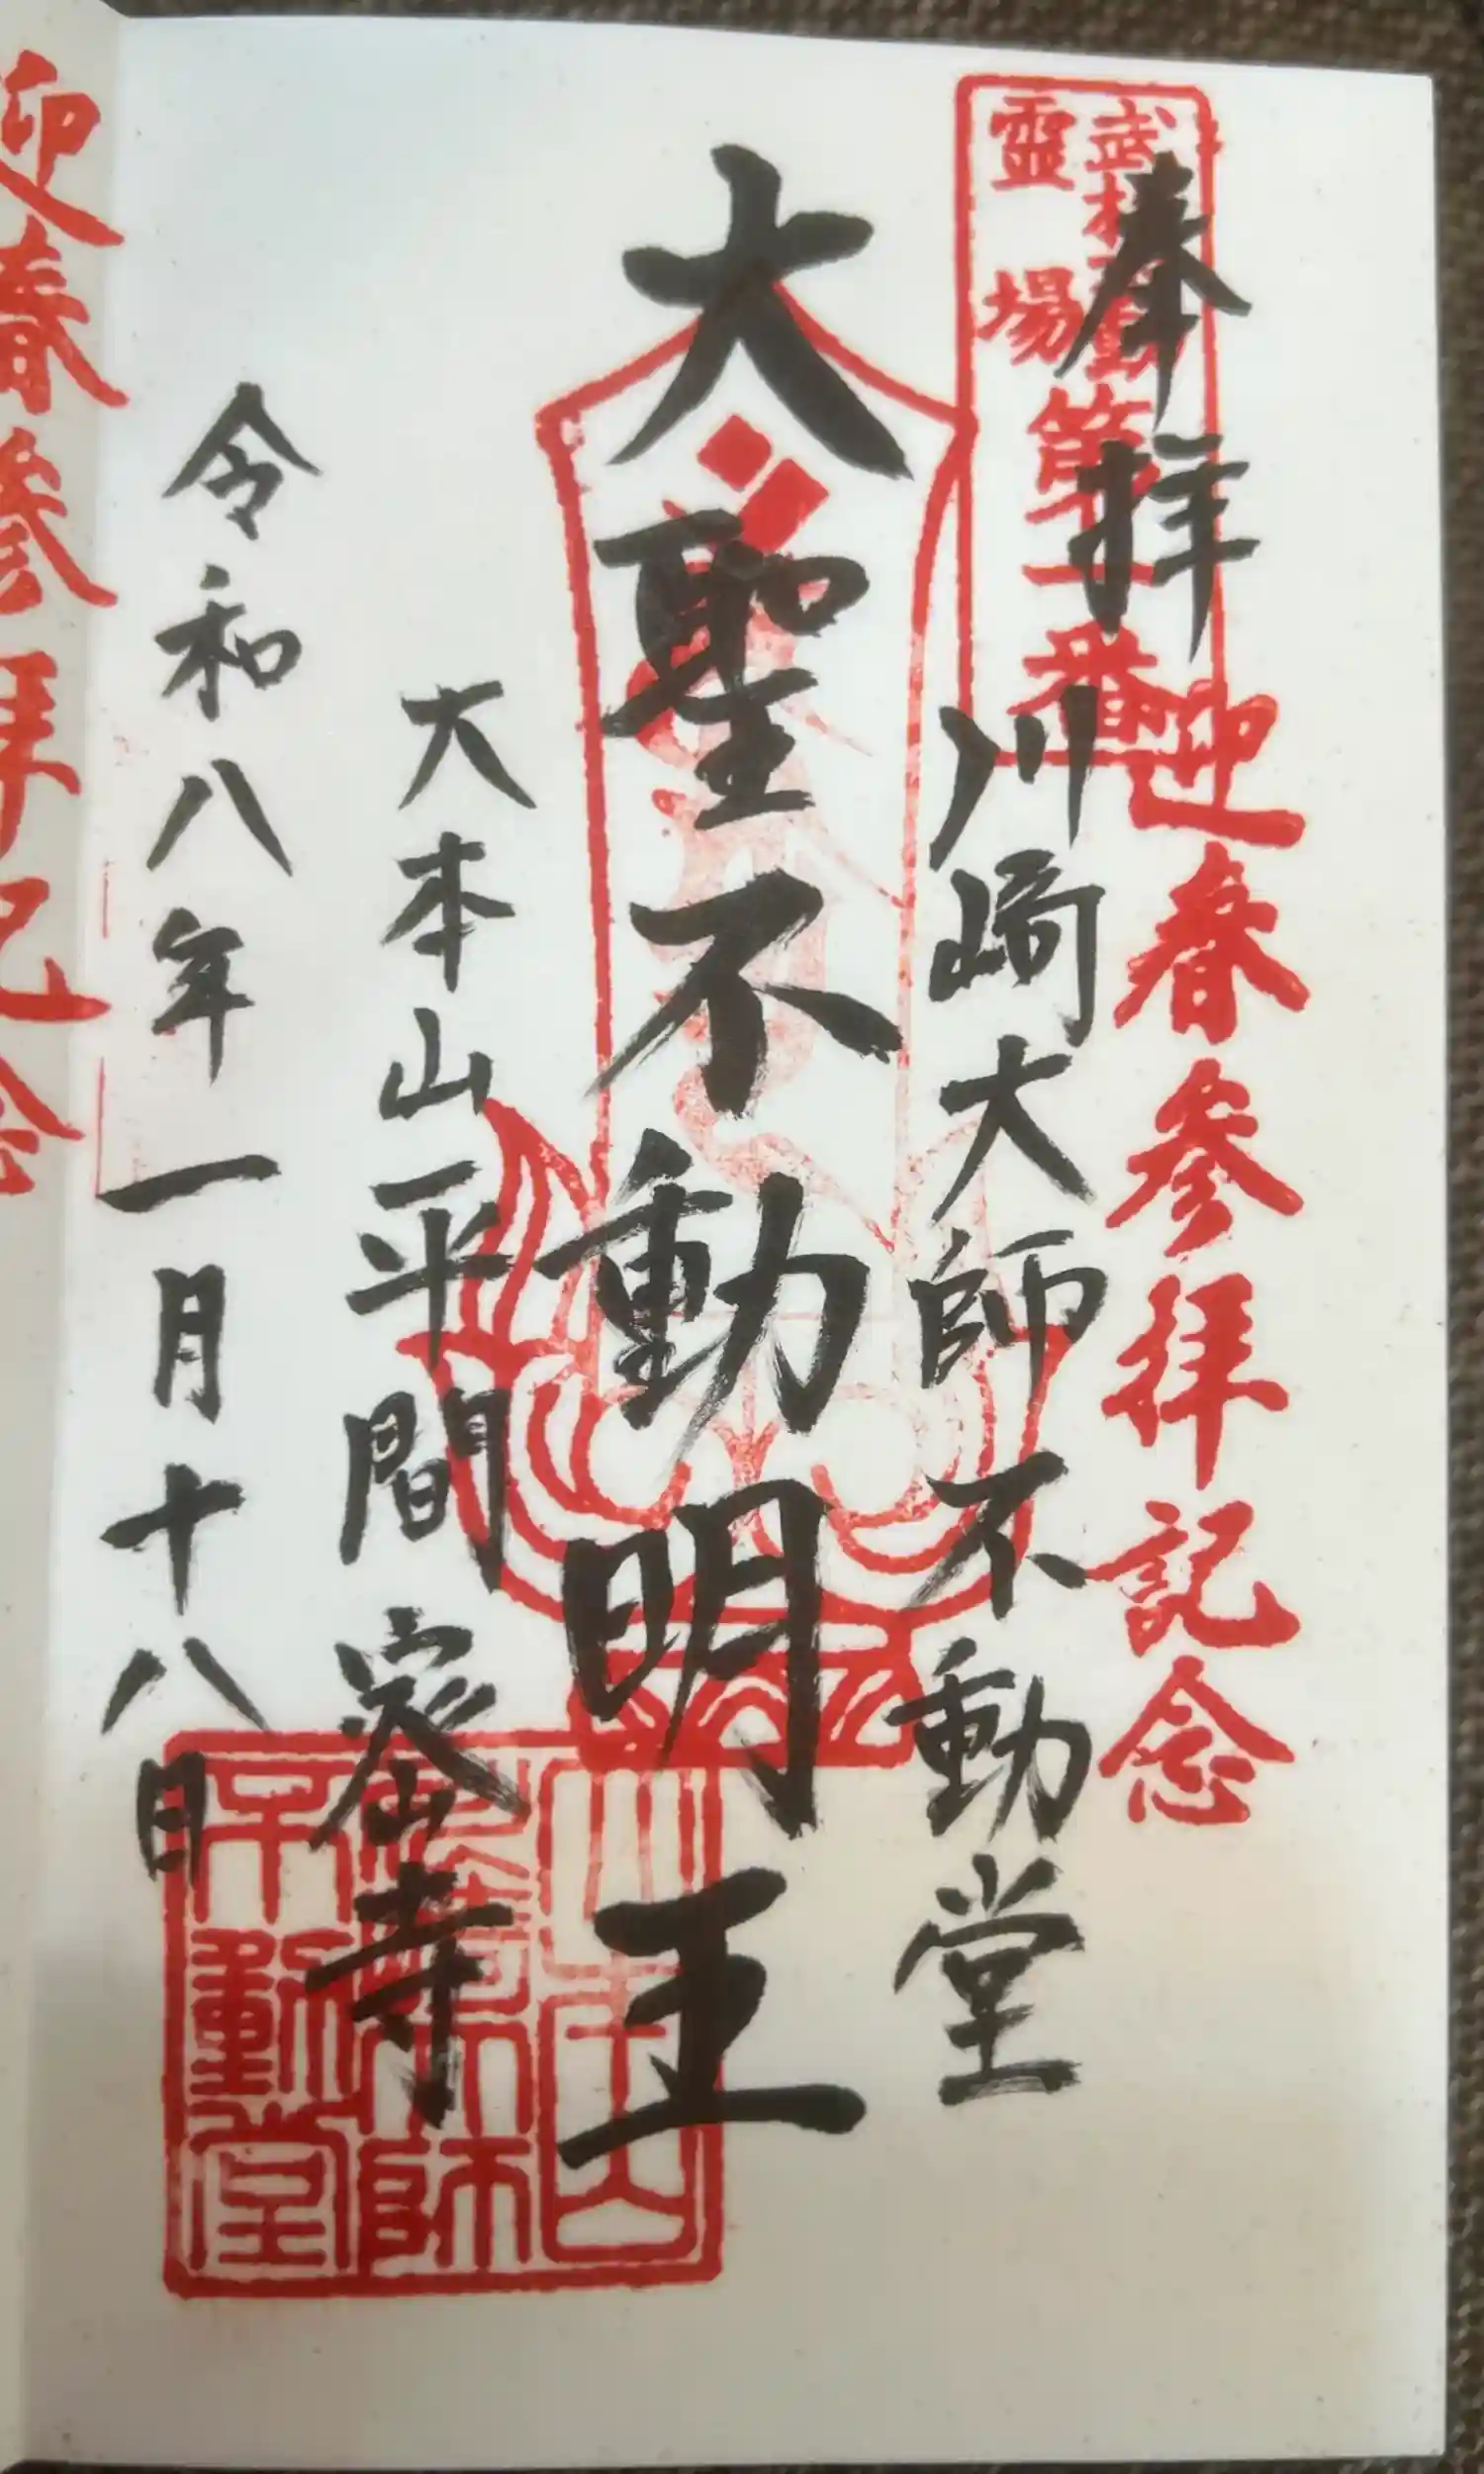 奉拝
武相不動
靈場
第一番
迎春参拝記念
川崎大師不動堂
大聖不動明王
大本山平間寺
令和八年一月十八日
金剛山
川崎大師
不動堂
迎春参拝記念